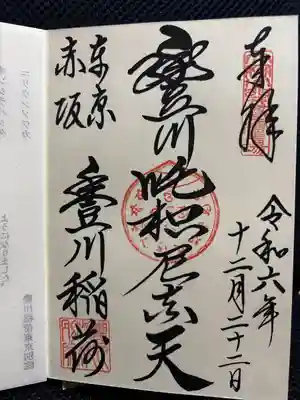 奉拝
令和六年
十二月二十二日
豐川吒枳尼真天
東京
赤坂
豐川稲荷